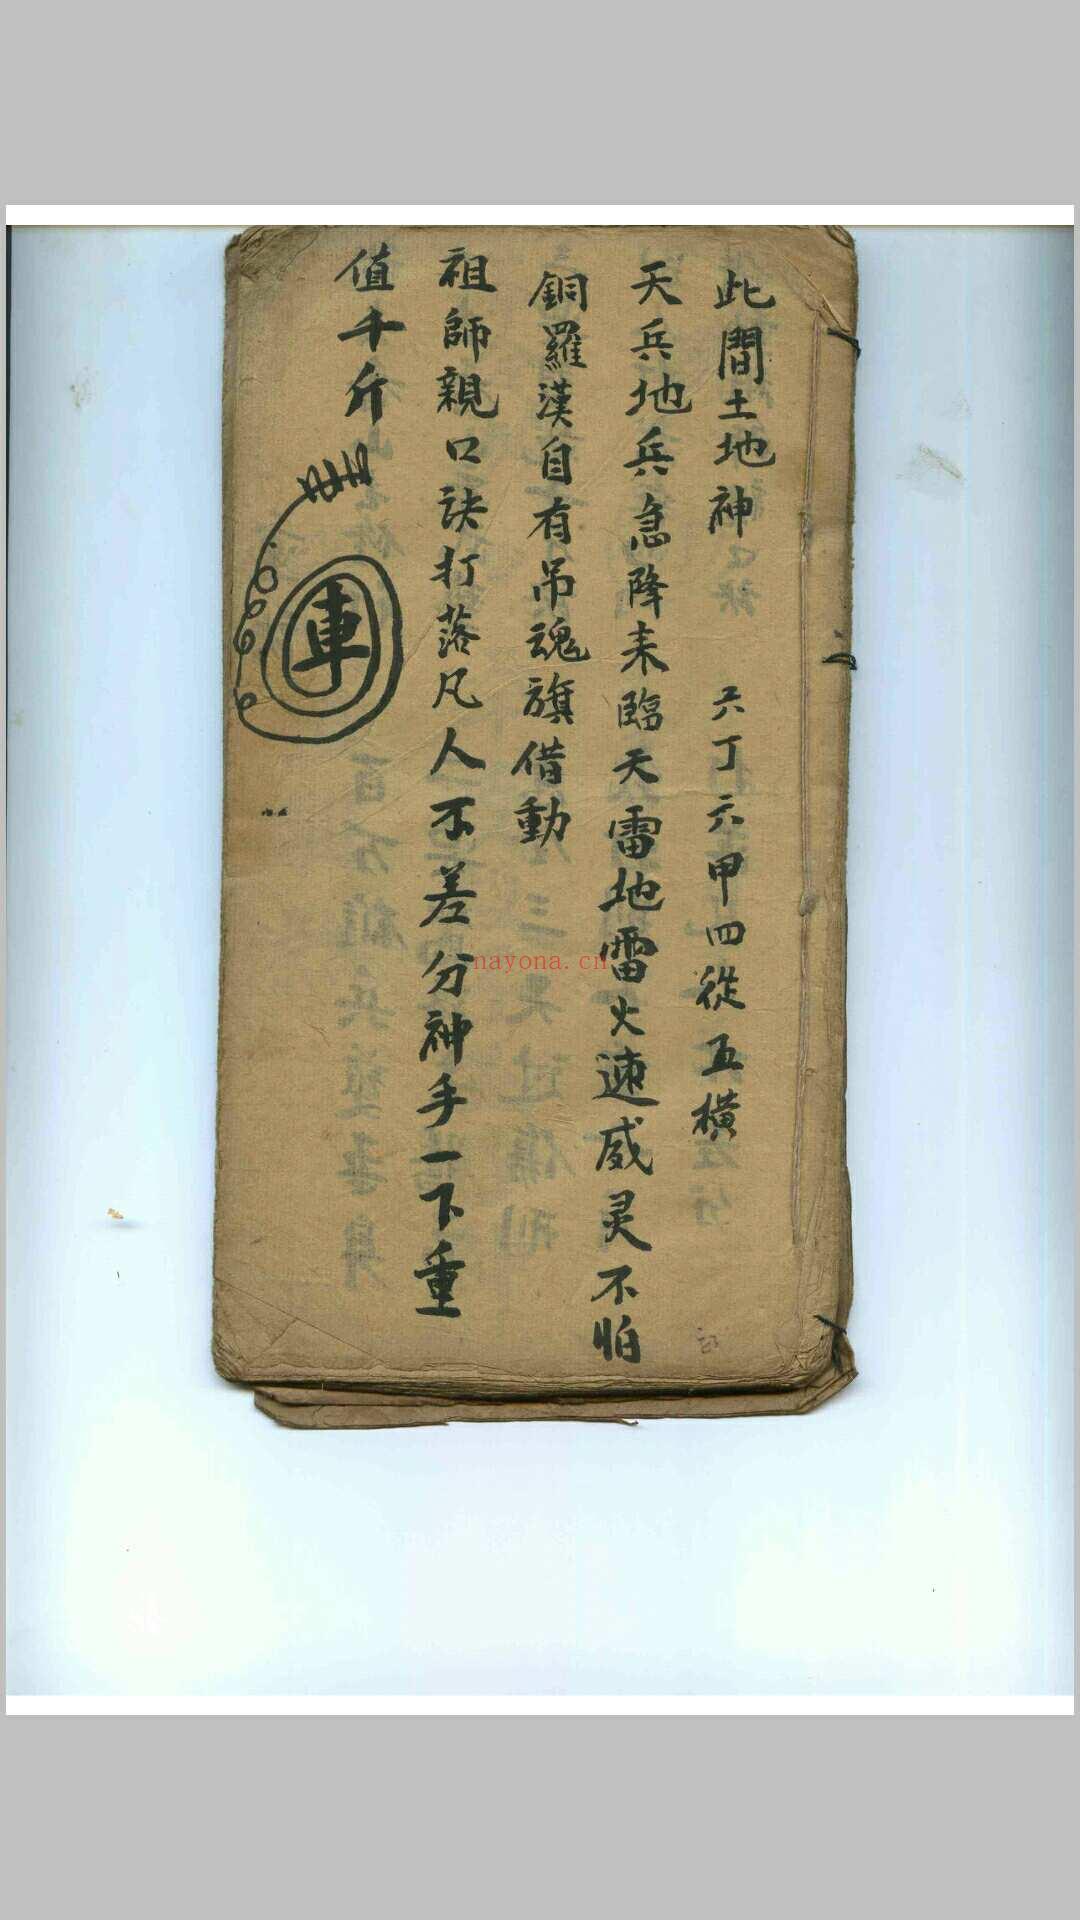 此間土地神　六丁六甲四從五橫
天兵地兵急降来臨天雷地雷火速威灵不怕
銅羅漢自有吊魂旗借動
祖師親口訣打落凡人不差分神手一下重
值千斤
車
nayona.cn